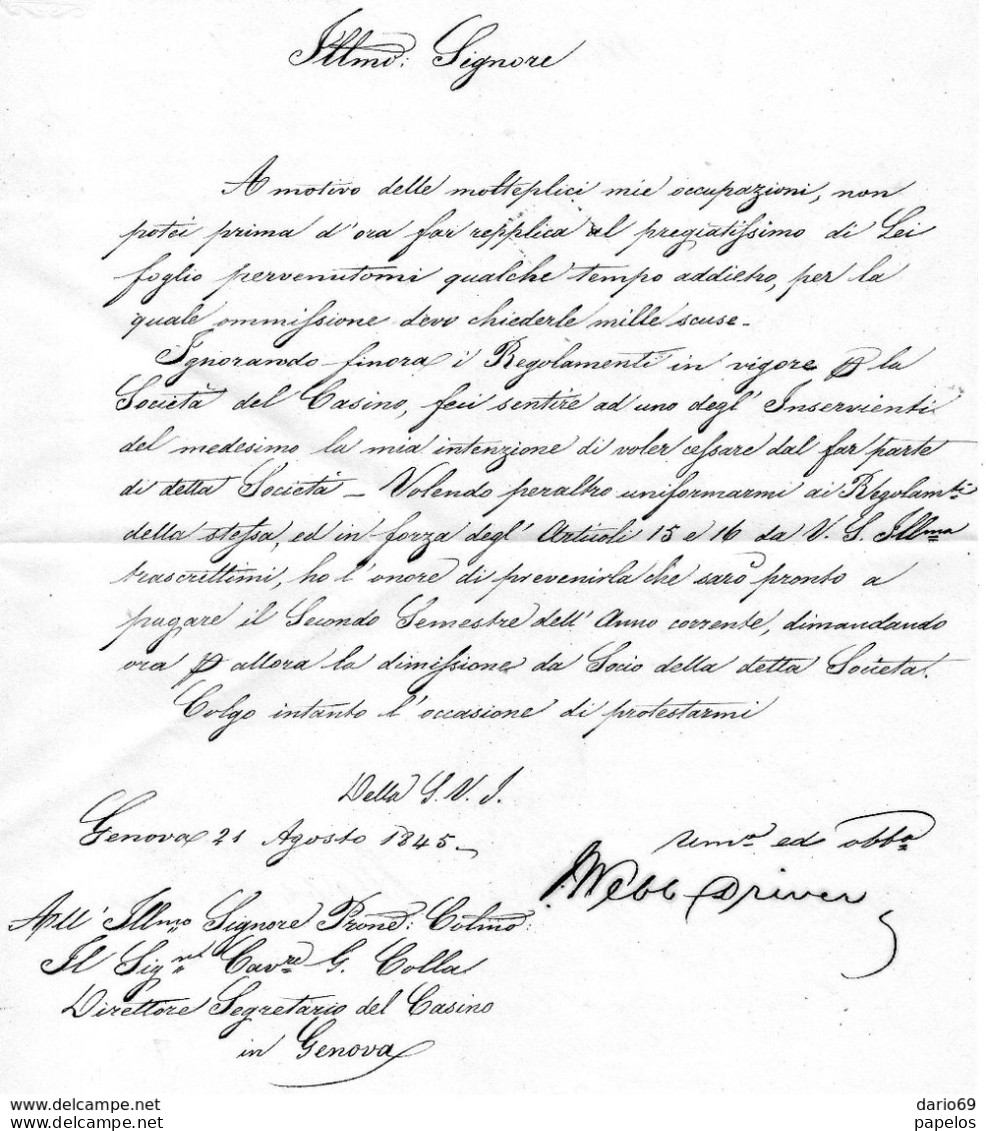 Illmo: Signore
A motivo delle molteplici mie occupazioni, non
potei prima d'ora far repplica al pregiatissimo di Lei
foglio pervenutomi qualche tempo addietro, per la
quale ommissione devo chiederle mille scuse.
Ignorando finora i Regolamenti in vigore p la
Società del Casino, feci sentire ad uno degl' Inservienti
del medesimo la mia intenzione di voler cessare dal far parte
di detta Società - Volendo peraltro uniformarmi ai Regolamti
della stessa, ed in forza degl' Articoli 15 e 16 da V. S. Illma
trascrittimi, ho l'onore di prevenirla che sarò pronto a
pagare il Secondo Semestre dell' Anno corrente, dimandando
ora p allora la dimissione da Socio della detta Società.
Colgo intanto l'occasione di protestarmi
Della S. V. I.
Genova 21 Agosto 1845 -
Umo ed obbo
J. Webb Driver
All' Illmo Signore Prone: Colmo:
Il Signr Cavre G. Colla
Direttore Segretario del Casino
in Genova
dario69
papelos
www.delcampe.net